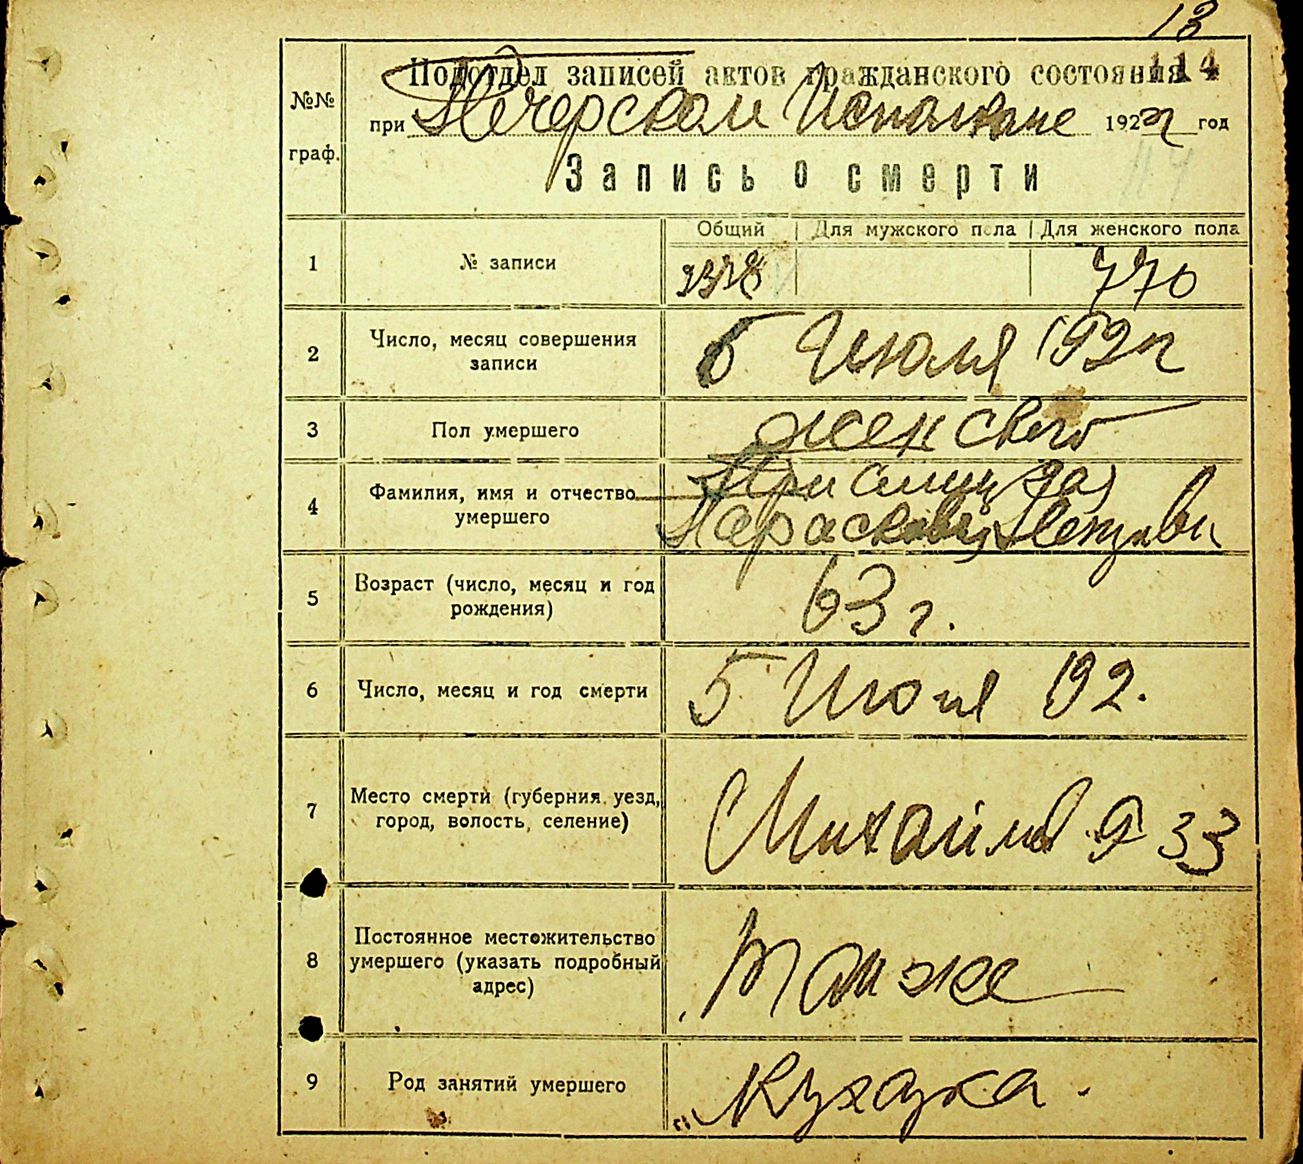 13
Подотдел записей актов гражданского состояния 114
при Печерском 192 год
№№ граф.
Запись о смерти
Общий | Для мужского пола | Для женского пола
1 № записи 770
2 Число, месяц совершения записи 6 Июля 192
3 Пол умершего женского
4 Фамилия, имя и отчество умершего
5 Возраст (число, месяц и год рождения) 63 г.
6 Число, месяц и год смерти 5 192.
7 Место смерти (губерния, уезд, город, волость, селение) 33
8 Постоянное местожительство умершего (указать подробный адрес) там же
9 Род занятий умершего Кухарка.